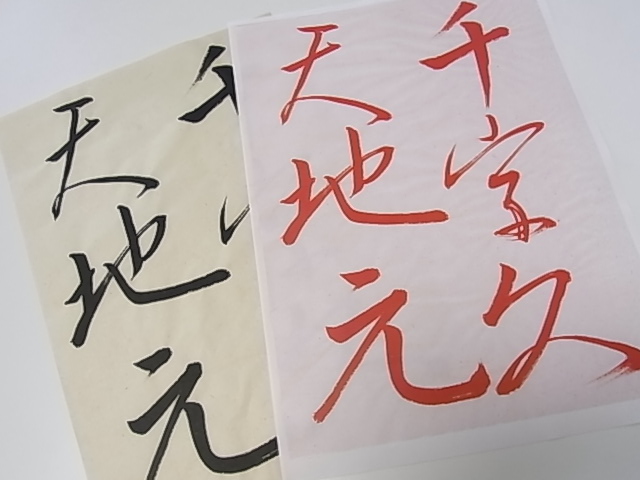 千字文
天地元
千
天地元